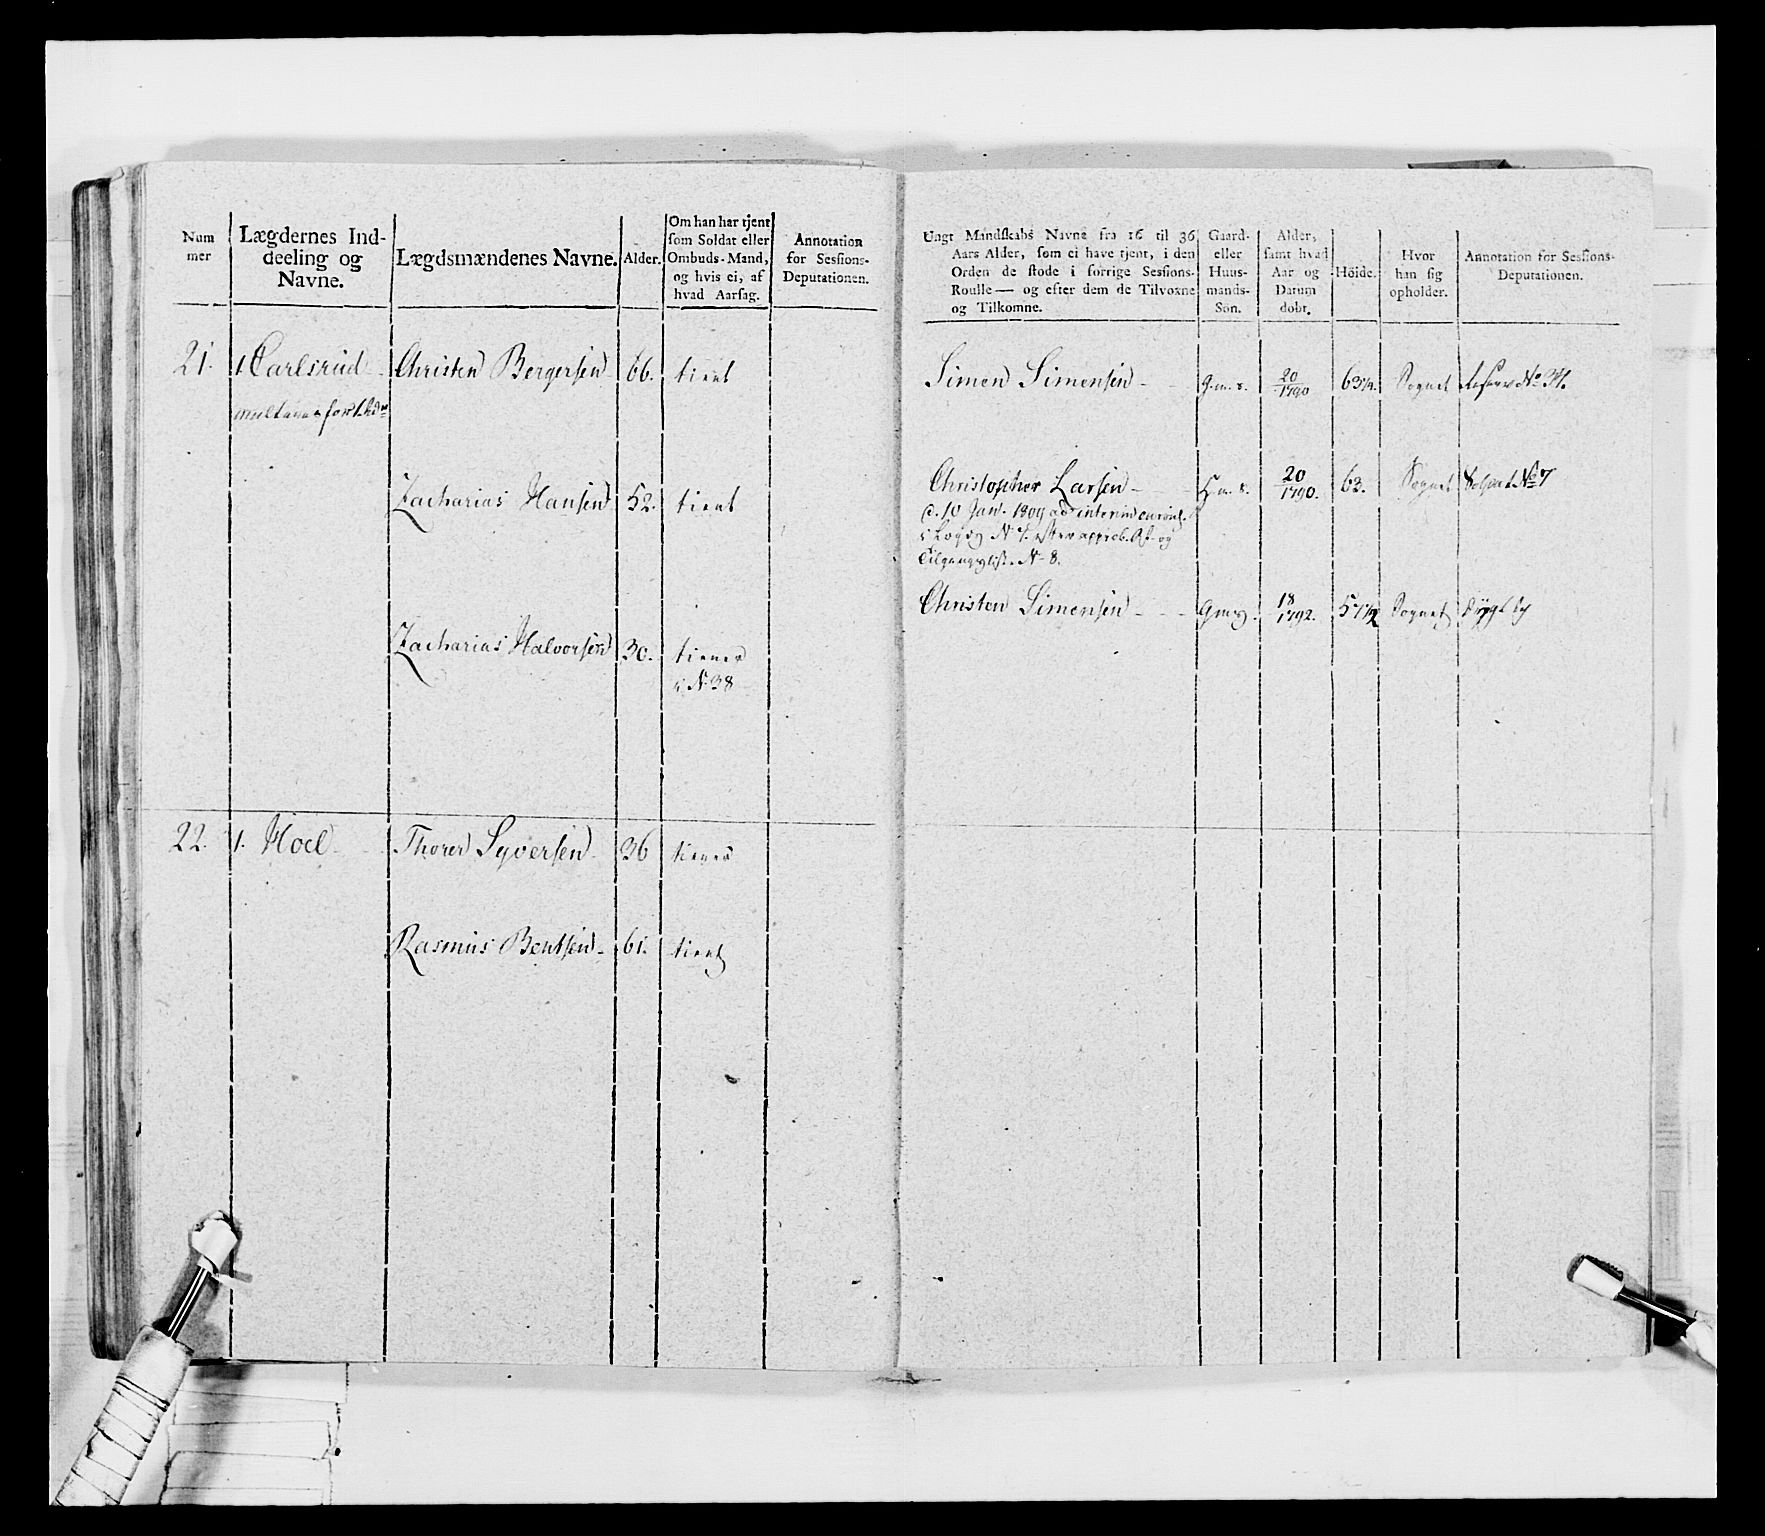 Num
mer
Lægdernes Ind-
deeling og
Navne.
Lægdsmændenes Navne.
Alder.
Om han har tjent
som Soldat eller
Ombuds-Mand,
og hvis ei, af
hvad Aarsag.
Annotation
for Sessions-
Deputationen.
21. 1 Carlsrud Christen Bergersen 66. tient
Zacharias Hansen 52. tient
Zacharias Halvorsen 30. tiener
i N. 38
22. 1. Hoel Thorer Syversen 36 tiener
Rasmus Bentsen 61. tient
Ungt Mandskabs Navne fra 16 til 36
Aars Alder, som ei have tjent, i den
Orden de stode i forrige Sessions-
Roulle — og efter dem de Tilvoxne
og Tilkomne.
Gaard-
eller
Huus-
mands-
Søn.
Alder,
samt hvad
Aar og
Datum
døbt.
Höide.
Hvor
han sig
opholder.
Annotation for Sessions-
Deputationen.
Simen Simensen G.m.s. 20/1790 63 1/4. Sognet No 34.
Christopher Larsen H.m.s. 20/1790. 63. Sognet No 7
d. 10 Jan. 1809 ad interim
N 7. approb. Af- og
Tilgangsliste N 8.
Christen Simensen Gms. 18/1792. 57 1/2 Sognet